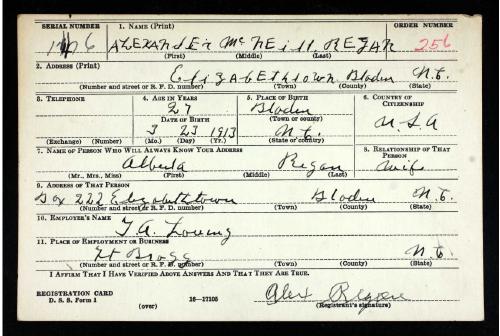 SERIAL NUMBER 1. NAME (Print) ORDER NUMBER
ALEXANDER McNEILL REGAN 256
(First) (Middle) (Last)
2. ADDRESS (Print)
ELIZABETHTOWN Bladen N.C.
(Number and street or R. F. D. number) (Town) (County) (State)
3. TELEPHONE 4. AGE IN YEARS 5. PLACE OF BIRTH 6. COUNTRY OF CITIZENSHIP
27 Bladen
DATE OF BIRTH (Town or county)
3 23 1913 N.C. U.S.A
(Exchange) (Number) (Mo.) (Day) (Yr.) (State or country)
7. NAME OF PERSON WHO WILL ALWAYS KNOW YOUR ADDRESS 8. RELATIONSHIP OF THAT PERSON
Alberta Regan Wife
(Mr., Mrs., Miss) (First) (Middle) (Last)
9. ADDRESS OF THAT PERSON
Box 222 Elizabethtown Bladen N.C.
(Number and street or R. F. D. number) (Town) (County) (State)
10. EMPLOYER'S NAME
T.A. Loving
11. PLACE OF EMPLOYMENT OR BUSINESS
Ft Bragg N.C.
(Number and street or R. F. D. number) (Town) (County) (State)
I AFFIRM THAT I HAVE VERIFIED ABOVE ANSWERS AND THAT THEY ARE TRUE.
REGISTRATION CARD
D. S. S. Form 1 (over) 16—17105 Alex Regan
(Registrant's signature)